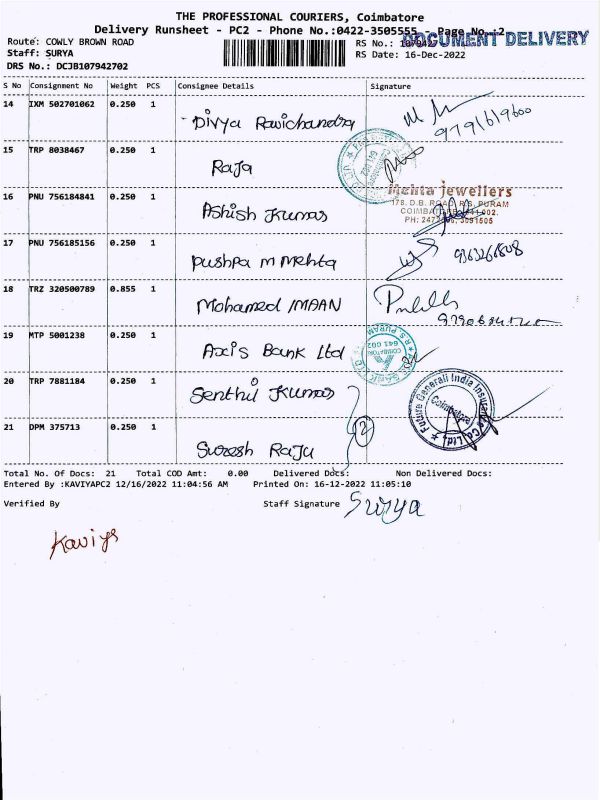 THE PROFESSIONAL COURIERS, Coimbatore
Delivery Runsheet - PC2 - Phone No.:0422-3505555 Page No.:2
DOCUMENT DELIVERY
Route: COWLY BROWN ROAD
RS No.:
Staff: SURYA
RS Date: 16-Dec-2022
DRS No.: DCJB107942702
S No Consignment No Weight PCS Consignee Details Signature
14 IXM 502701062 0.250 1 Divya Ravichandra
9791619600
15 TRP 8038467 0.250 1 Raja
16 PNU 756184841 0.250 1 Ashish Kumar
Mehta Jewellers
178, D.B. ROAD, R.S. PURAM
17 PNU 756185156 0.250 1 pushpa m mehta
18 TRZ 320500789 0.855 1 Mohamed IMAAN
19 MTP 5001238 0.250 1 Axis Bank Ltd
COIMBATORE 641 002
R S PURAM
20 TRP 7881184 0.250 1 Senthil Kumar
Future Generali India Insurance Co. Ltd.
Coimbatore
21 DPM 375713 0.250 1 Suresh Raju
2
Total No. Of Docs: 21 Total COD Amt: 0.00 Delivered Docs: Non Delivered Docs:
Entered By :KAVIYAPC2 12/16/2022 11:04:56 AM Printed On: 16-12-2022 11:05:10
Verified By Staff Signature Surya
Kaviya